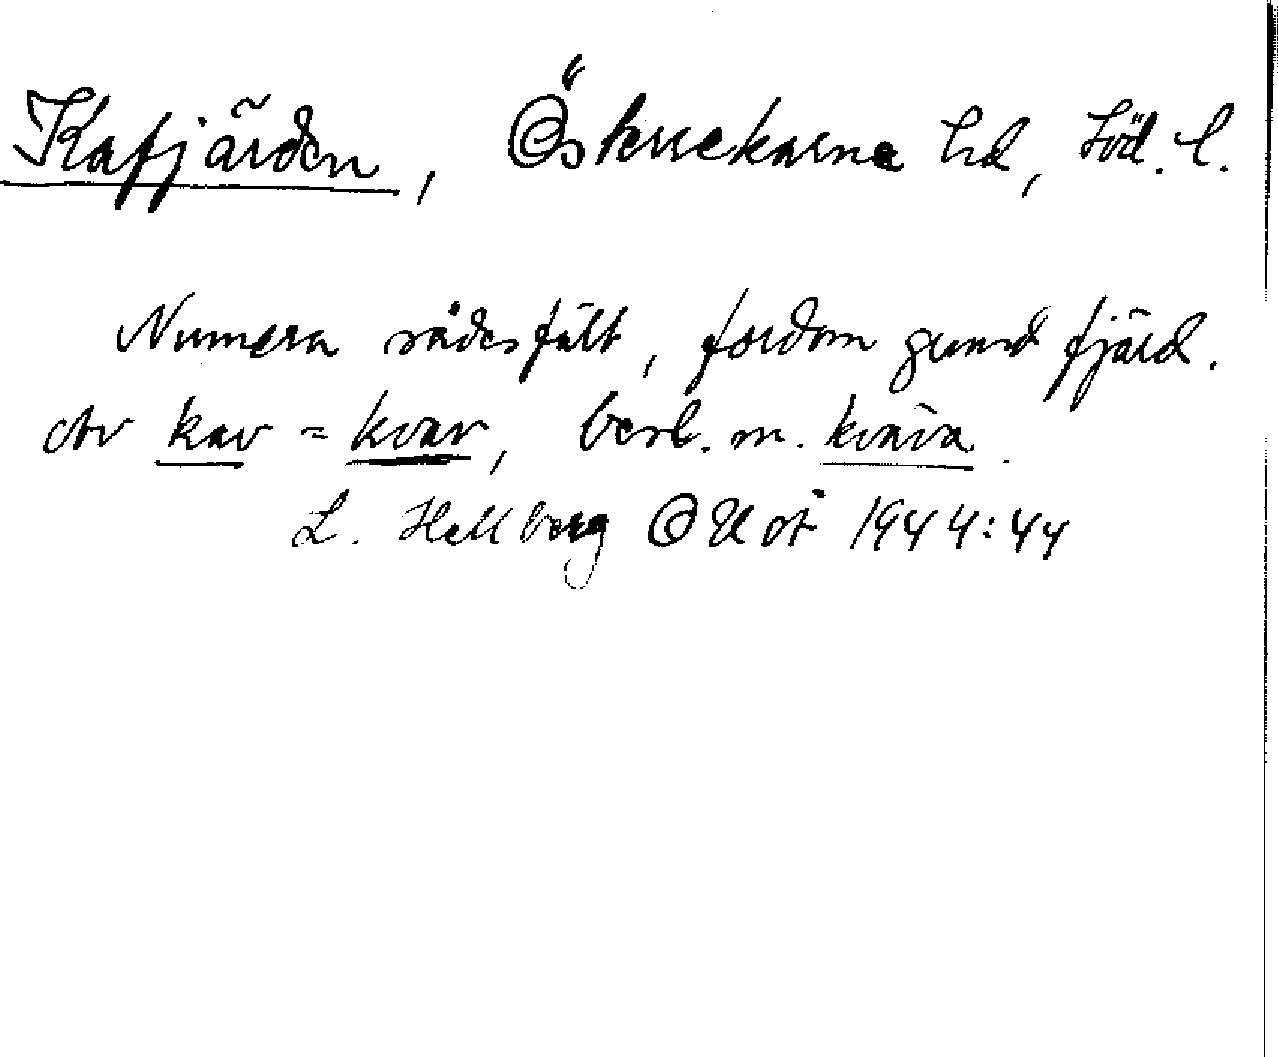 Kafjärden, Österrekarne hd, Söd. l.
Numera sädesfält, fordom grund fjärd.
Av kav = kvav, besl. m. kväva.
L. Hellberg OUÅ 1944:44